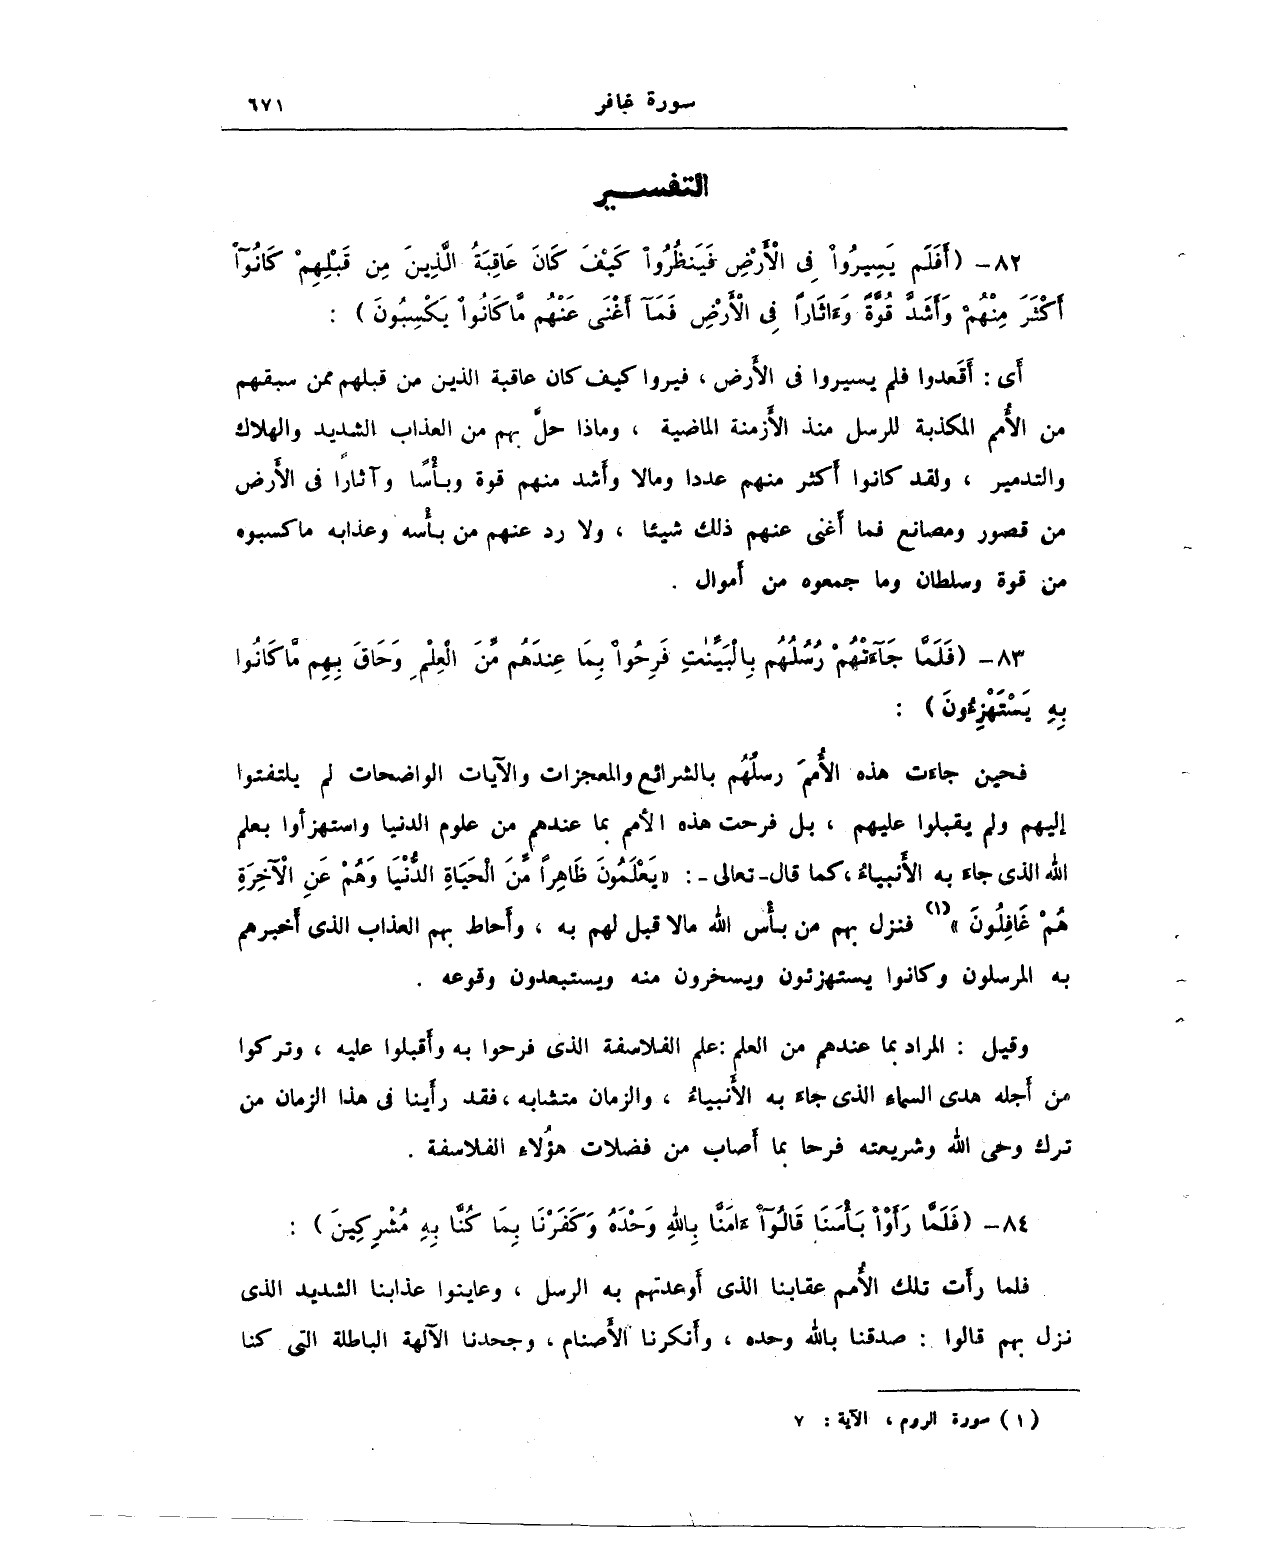 سورة غافر ٦٧١
التفسير
٨٢ - ( أَفَلَمْ يَسِيرُواْ فِى الْأَرْضِ فَيَنظُرُواْ كَيْفَ كَانَ عَاقِبَةُ الَّذِينَ مِن قَبْلِهِمْ كَانُوٓاْ
أَكْثَرَ مِنْهُمْ وَأَشَدَّ قُوَّةً وَءَاثَاراً فِى الْأَرْضِ فَمَآ أَغْنَى عَنْهُم مَّا كَانُواْ يَكْسِبُونَ ) :
أَى : أَقَعدوا فلم يسيروا فى الأَرض ، فيروا كيف كان عاقبة الذين من قبلهم ممن سبقهم
من الأُمم المكذبة للرسل منذ الأَزمنة الماضية ، وماذا حلَّ بهم من العذاب الشديد والهلاك
والتدمير ، ولقد كانوا أَكثر منهم عددا ومالا وأَشد منهم قوة وبأْسًا وآثارًا فى الأَرض
من قصور ومصانع فما أَغنى عنهم ذلك شيئا ، ولا رد عنهم من بأْسه وعذابه ما كسبوه
من قوة وسلطان وما جمعوه من أَموال .
٨٣ - ( فَلَمَّا جَآءَتْهُمْ رُسُلُهُم بِالْبَيِّنَٰتِ فَرِحُواْ بِمَا عِندَهُم مِّنَ الْعِلْمِ وَحَاقَ بِهِم مَّا كَانُوا
بِهِ يَسْتَهْزِءُونَ ) :
فحين جاءت هذه الأُممَ رسلُهُم بالشرائع والمعجزات والآيات الواضحات لم يلتفتوا
إليهم ولم يقبلوا عليهم ، بل فرحت هذه الأمم بما عندهم من علوم الدنيا واستهزأوا بعلم
الله الذى جاءَ به الأَنبياءُ ، كما قال - تعالى - : « يَعْلَمُونَ ظَاهِراً مِّنَ الْحَيَاةِ الدُّنْيَا وَهُمْ عَنِ الْآخِرَةِ
هُمْ غَافِلُونَ » (١) فنزل بهم من بأْس الله مالا قبل لهم به ، وأَحاط بهم العذاب الذى أَخبرهم
به المرسلون وكانوا يستهزئون ويسخرون منه ويستبعدون وقوعه .
وقيل : المراد بما عندهم من العلم : علم الفلاسفة الذى فرحوا به وأَقبلوا عليه ، وتركوا
من أَجله هدى السماء الذى جاءَ به الأَنبياءُ ، والزمان متشابه ، فقد رأَينا فى هذا الزمان من
ترك وحى الله وشريعته فرحا بما أَصاب من فضلات هؤُلاء الفلاسفة .
٨٤ - ( فَلَمَّا رَأَوْاْ بَأْسَنَا قَالُوٓاْ ءَامَنَّا بِاللهِ وَحْدَهُ وَكَفَرْنَا بِمَا كُنَّا بِهِ مُشْرِكِينَ ) :
فلما رأَت تلك الأُمم عقابنا الذى أَوعدتهم به الرسل ، وعاينوا عذابنا الشديد الذى
نزل بهم قالوا : صدقنا بالله وحده ، وأَنكرنا الأَصنام ، وجحدنا الآلهة الباطلة التى كنا
(١) سورة الروم ، الآية : ٧